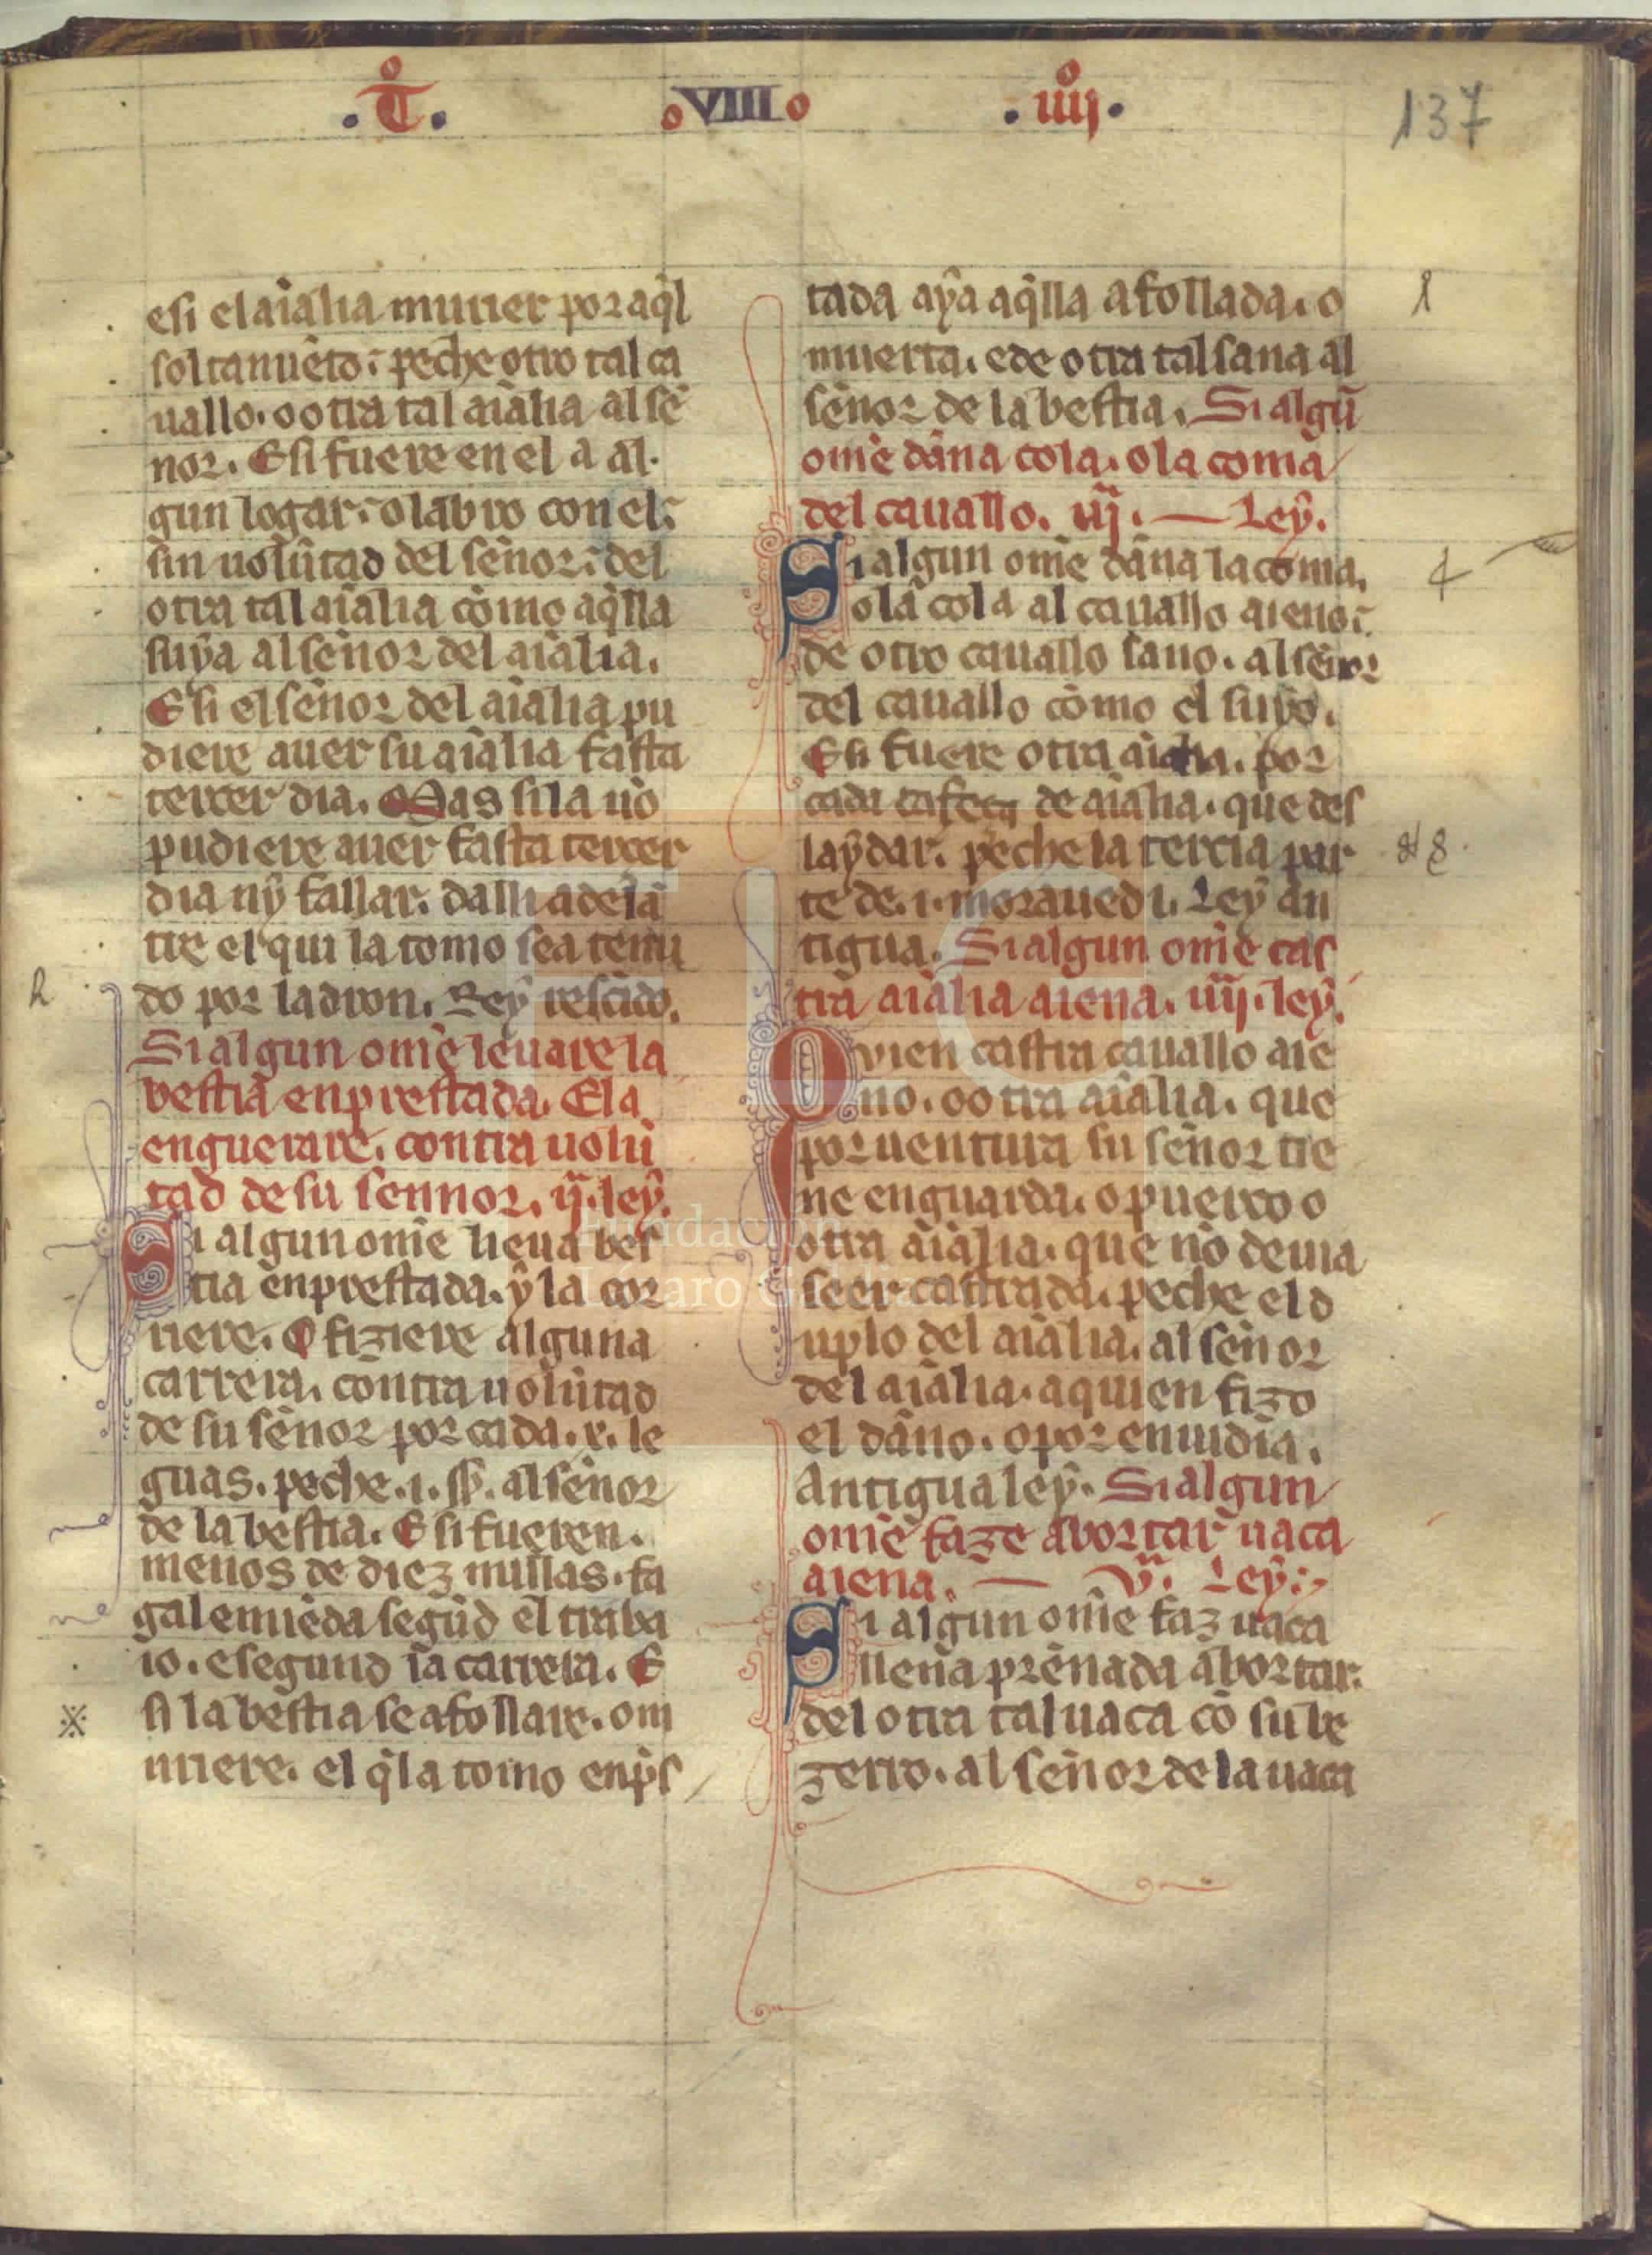 .T͛o. oVIIIo .iiijo.
137
esi el aïalia murier por aq̃l
soltamiẽto: peche otro tal ca
uallo. o otra tal aïalia al sẽ
nor. E si fuere en el a al
gun logar: o labro con el:
sin uolũtad del seño2: del
otra tal aïalia cõmo aq̃lla
suya al seño2 del aïalia.
E si el seño2 del aïalia pu
diere auer su aïalia fasta
tercer dia. Mas si la nõ
pudiere auer fasta tercer
dia nȳ fallar. dalli adelã
tre el qui la tomo sea tenu
do por ladron. Rey rescido.
Si algun om̃e leuare la
bestia enprestada. E la
enguerare. contra uolũ
tad de su sennor. ij. ley.
Si algun om̃e lieua bes
tia enprestada. y la cor
riere. O fiziere alguna
carrera. contra uolũtad
de su seño2 por cada .x. le
guas. peche .i. ss. al seño2
de la bestia. E si fueren.
menos de diez millas. fa
gal emiẽda segũd el traba
io. e segund la carrera. E
si la bestia se afollare. o m
uriere. el q̃ la tomo enp̃s
tada aya aq̃lla afollada. o
muerta. e de otra tal sana al
seño2 de la bestia. Si algũ
om̃e dãna cola. o la coma
del cauallo. iij. — Ley.
Si algun om̃e dãna la coma,
o la cola al cauallo aieno:
de otro cauallo sano. al seño2
del cauallo cõmo el suyo.
E si fuere otra aïalia. por
cada de aïalia. que des
laydar. peche la tercia par
te de .i. morauedi. Ley an
tigua. Si algun om̃e cas
tra aïalia aiena. iiij. ley.
Quien castra cauallo aie
no. o otra aïalia. que
por uentura su seño2 tie
ne en guarda. o puerco o
otra aïalia. que nõ deuia
seer castrada. peche el d
uplo del aïalia. al seño2
del aïalia. a quien fizo
el dãno. o por enuidia.
Antigua ley. Si algun
om̃e faze abortar uaca
aiena. — v. Ley:
Si algun om̃e faz uaca
llena prẽnada abortar.
del otra tal uaca cõ su be
zerro. al seño2 de la uaca
Fundación
Lázaro Galdiano